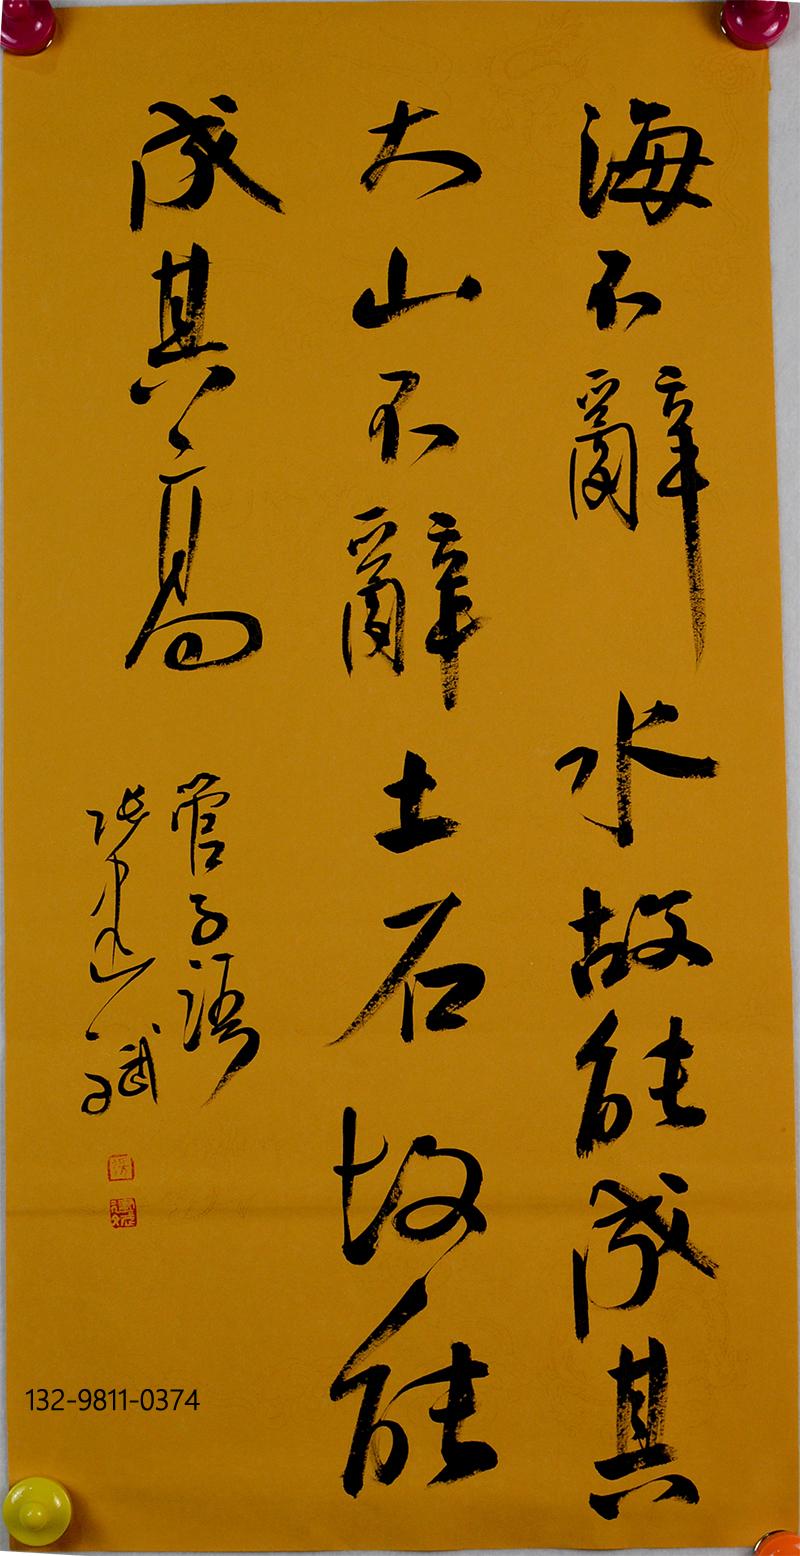 海不辭水故能成其
大山不辭土石故能
成其高
管子語
张建斌
132-9811-0374